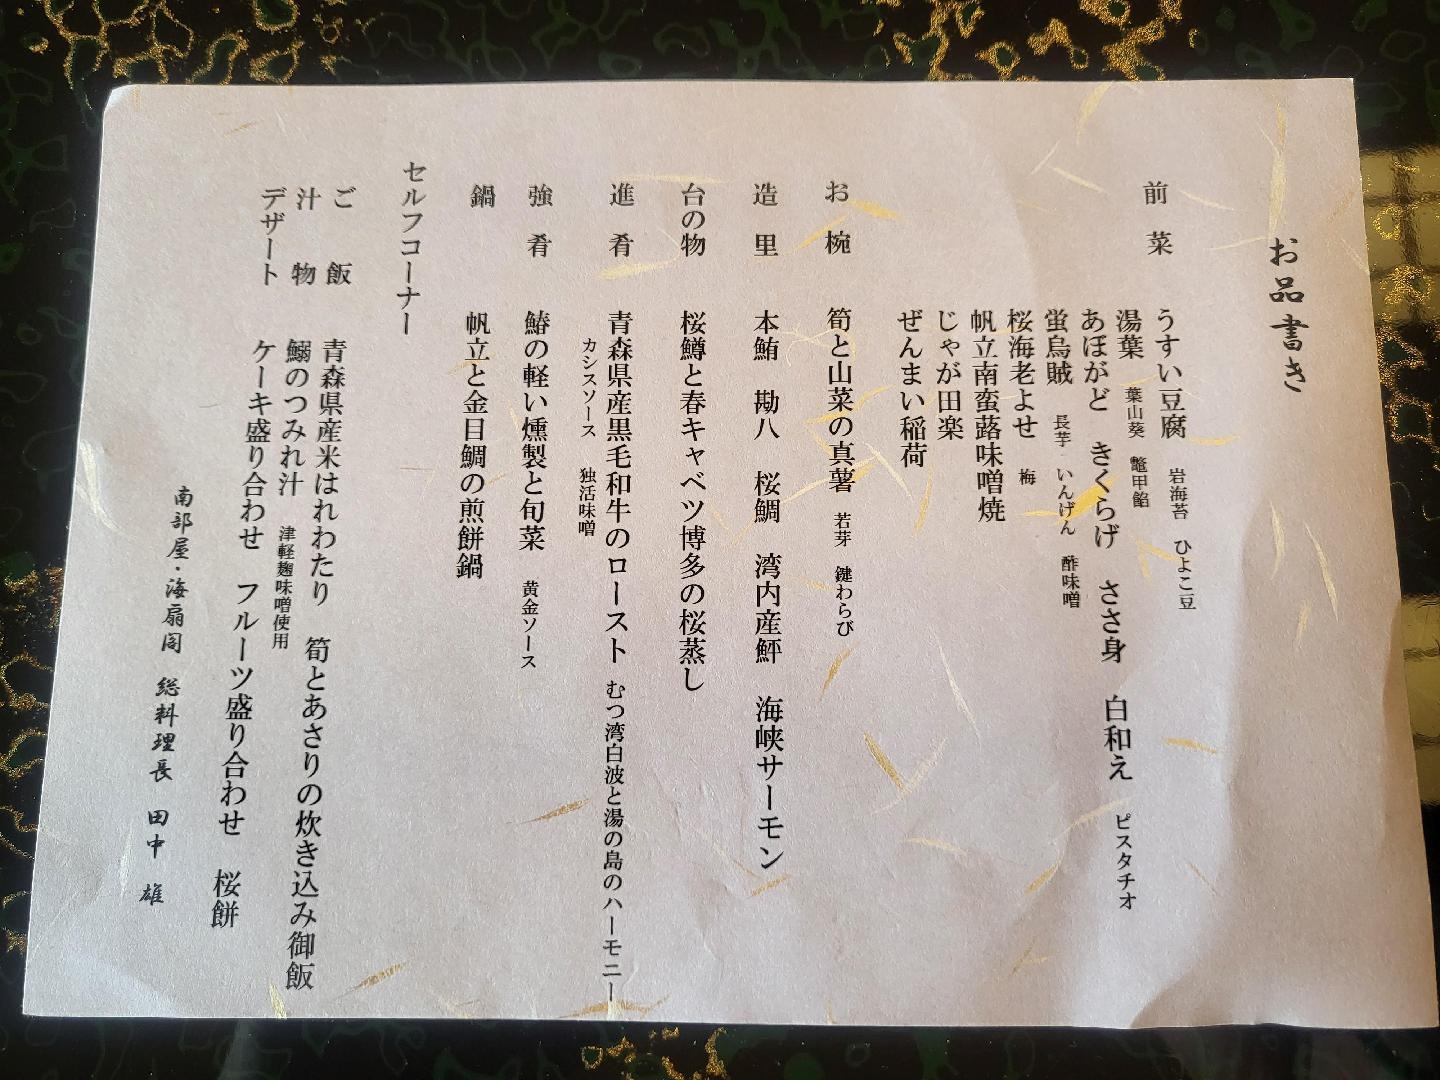 お品書き
前菜 うすい豆腐 岩海苔 ひよこ豆
湯葉 葉山葵 鼈甲餡
あぼがど きくらげ ささ身 白和え ピスタチオ
蛍烏賊 長芋・いんげん 酢味噌
桜海老よせ 梅
帆立南蛮蕗味噌焼
じゃが田楽
ぜんまい稲荷
お椀 筍と山菜の真薯 若芽 鍵わらび
造里 本鮪 勘八 桜鯛 湾内産鮃 海峡サーモン
台の物 桜鱒と春キャベツ博多の桜蒸し
進肴 青森県産黒毛和牛のロースト むつ湾白波と湯の島のハーモニー
カシスソース 独活味噌
強肴 鰆の軽い燻製と旬菜 黄金ソース
鍋 帆立と金目鯛の煎餅鍋
セルフコーナー
ご飯 青森県産米はれわたり 筍とあさりの炊き込み御飯
汁物 鰯のつみれ汁 津軽麹味噌使用
デザート ケーキ盛り合わせ フルーツ盛り合わせ 桜餅
南部屋・海扇閣 総料理長 田中 雄